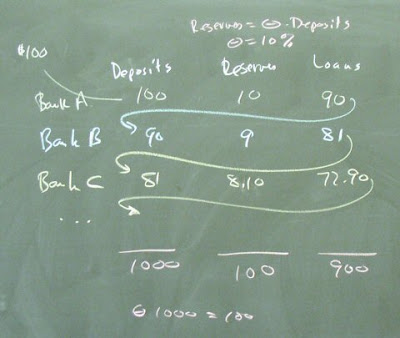 Reserves = Θ · Deposits
Θ = 10%
$100
Deposits Reserves Loans
Bank A 100 10 90
Bank B 90 9 81
Bank C 81 8.10 72.90
. . .
1000 100 900
Θ 1000 = 100